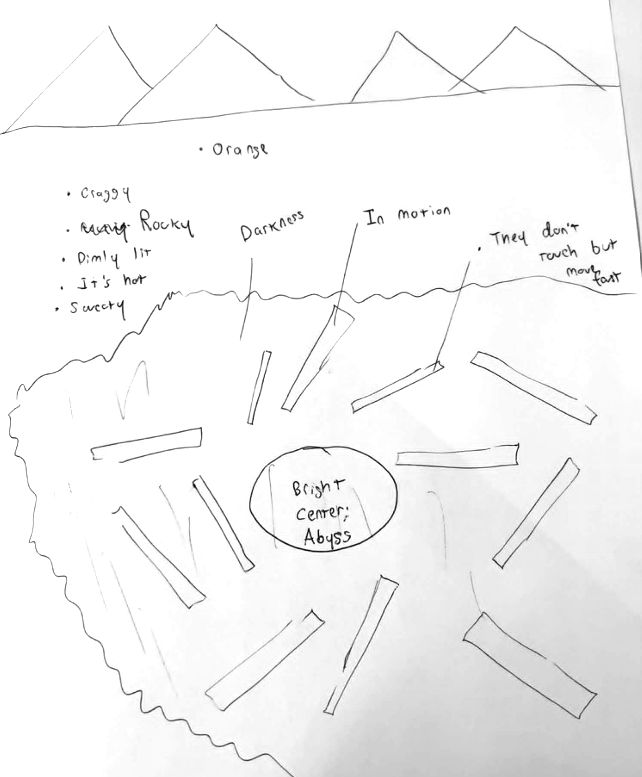 • Orange
• Craggy
• Rocky
• Dimly lit
• It's hot
• Sweaty
Darkness
In motion
• They don't
touch but
move
fast
Bright
Center:
Abyss